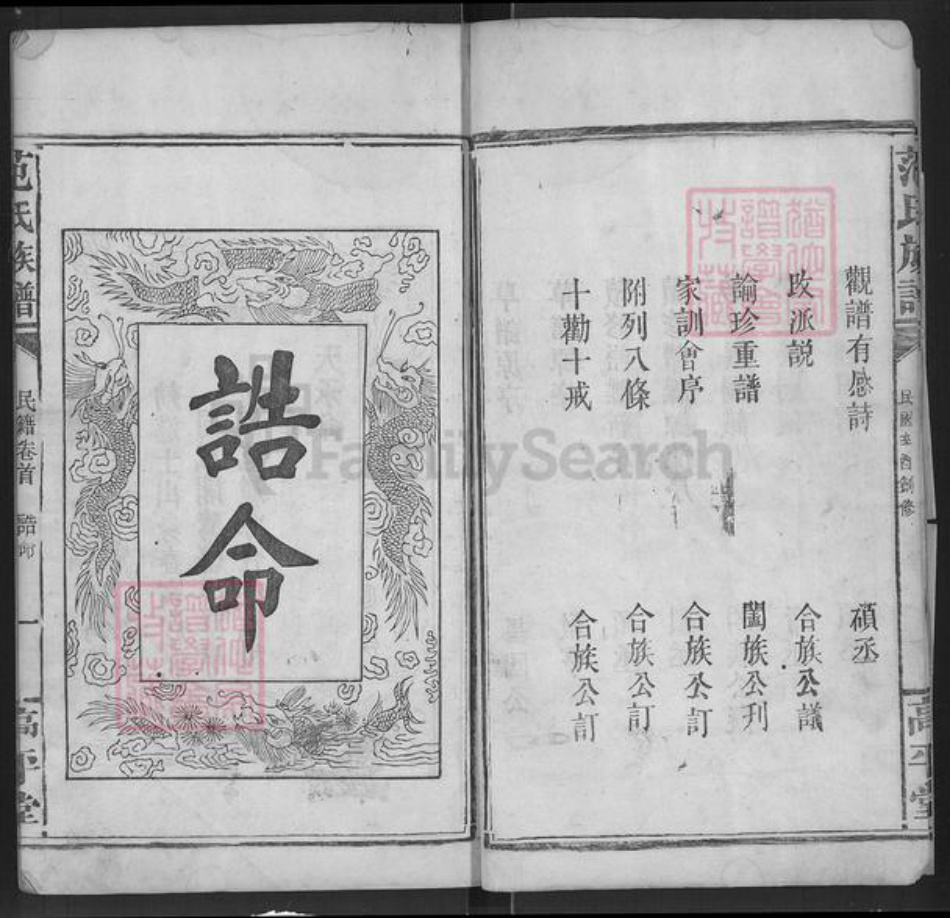 范氏族譜
觀譜有感詩 碩丞
攺派説 合族公議
諭珍重譜 闔族公刋
家訓會序 合族公訂
附列入條 合族公訂
十勸十戒 合族公訂
高平堂
誥命
范氏族譜
民籍卷首
誥命
一
高平堂
FamilySearch